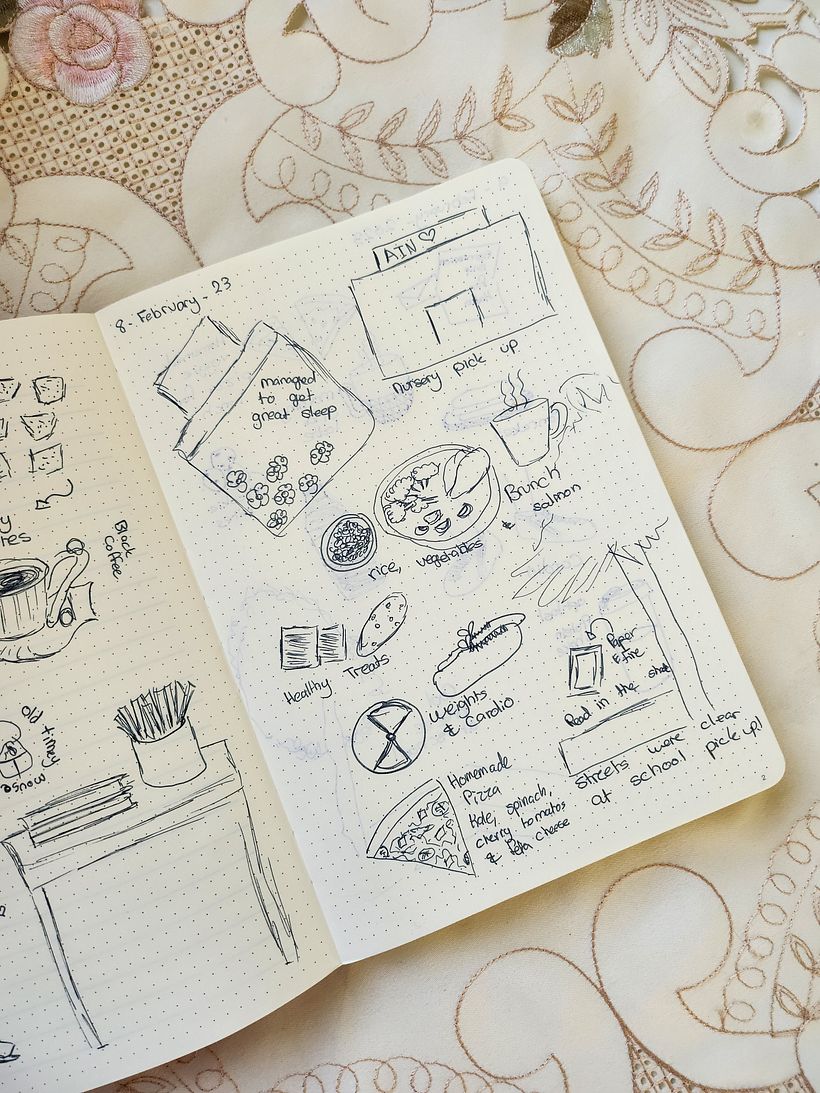 8 - February - 23
AIN ♡
nursery pick up
managed
to get
great sleep
Brunch
rice, vegetables & salmon
Healthy Treats
Weights
& Cardio
Paper
& fire
Read in the
streets were clear
at school pick up!
Homemade
Pizza
Kale, spinach,
cherry tomatos
& feta cheese
2
Black
Coffee
Old timey
mouse